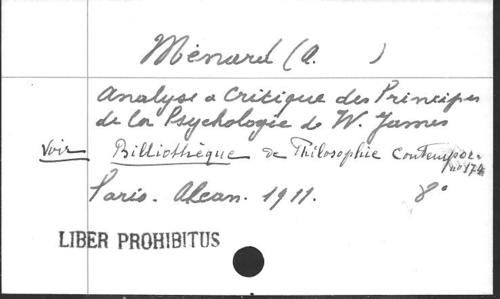 Ménard (A. )
Analyse & Critique des Principes
de la Psychologie de W. James
voir Billiothèque de Philosophie Contempor.
no 174
Paris. Alcan. 1911. 8°
LIBER PROHIBITUS